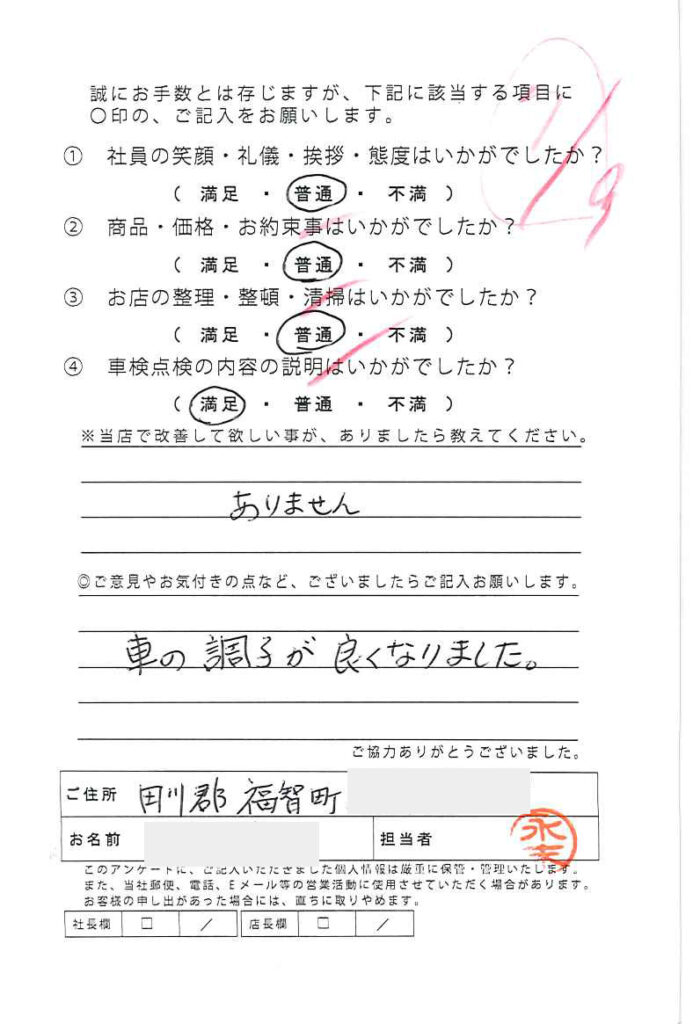 誠にお手数とは存じますが、下記に該当する項目に
〇印の、ご記入をお願いします。
7/9
① 社員の笑顔・礼儀・挨拶・態度はいかがでしたか？
( 満足 ・ 普通 ・ 不満 )
② 商品・価格・お約束事はいかがでしたか？
( 満足 ・ 普通 ・ 不満 )
③ お店の整理・整頓・清掃はいかがでしたか？
( 満足 ・ 普通 ・ 不満 )
④ 車検点検の内容の説明はいかがでしたか？
( 満足 ・ 普通 ・ 不満 )
※当店で改善して欲しい事が、ありましたら教えてください。
ありません
◎ご意見やお気付きの点など、ございましたらご記入お願いします。
車の調子が良くなりました。
ご協力ありがとうございました。
ご住所 田川郡福智町
お名前 担当者
このアンケートに、ご記入いただきました個人情報は厳重に保管・管理いたします。
また、当社郵便、電話、Eメール等の営業活動に使用させていただく場合があります。
お客様の申し出があった場合には、直ちに取りやめます。
社長欄 □ / 店長欄 □ /